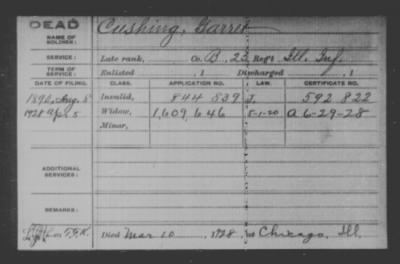 DEAD
NAME OF SOLDIER: Cushing, Garrit
SERVICE: Late rank, Co. B, 23 Reg't Ill. Inf.
TERM OF SERVICE: Enlisted , 1 Discharged , 1
DATE OF FILING. CLASS. APPLICATION NO. LAW. CERTIFICATE NO.
1890, Aug. 8 Invalid, 844 839 J. 592 822
1928 Apr 5 Widow, 1,609,646 5-1-20 A 6-29-28
Minor,
ADDITIONAL SERVICES:
REMARKS:
Died Mar 20, 1928, at Chicago, Ill.